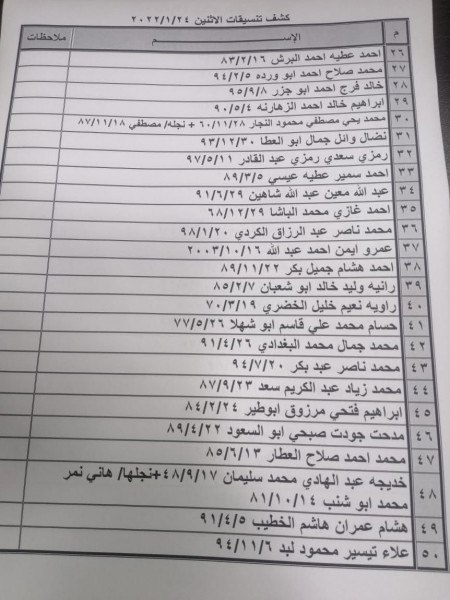 كشف تنسيقات الاثنين ٢٠٢٢/١/٢٤
م الإســـــم ملاحظات
٢٦ احمد عطيه احمد البرش ٨٣/٢/١٦
٢٧ محمد صلاح احمد ابو ورده ٩٤/٢/٥
٢٨ خالد فرج احمد ابو جزر ٩٥/٩/٨
٢٩ ابراهيم خالد احمد الزهارنه ٩٠/٥/٤
٣٠ محمد يحي مصطفي محمود النجار ٦٠/١١/٢٨ + نجله/ مصطفي ٨٧/١١/١٨
٣١ نضال وائل جمال ابو العطا ٩٣/١٢/٣٠
٣٢ رمزي سعدي رمزي عبد القادر ٩٧/٥/١١
٣٣ احمد سمير عطيه عيسي ٨٩/٣/٥
٣٤ عبد الله معين عبد الله شاهين ٩١/٦/٢٩
٣٥ احمد غازي محمد الباشا ٦٨/١٢/٢٩
٣٦ محمد ناصر عبد الرزاق الكردي ٩٨/١/٢٠
٣٧ عمرو ايمن احمد عبد الله ٢٠٠٣/١٠/١٦
٣٨ احمد هشام جميل بكر ٨٩/١١/٢٢
٣٩ رانيه وليد خالد ابو شعبان ٨٥/٢/٧
٤٠ راويه نعيم خليل الخضري ٧٠/٣/١٩
٤١ حسام محمد علي قاسم ابو شهلا ٧٧/٥/٢٦
٤٢ محمد جمال محمد البغدادي ٩١/٤/٢٦
٤٣ محمد ناصر عبد بكر ٩٤/٧/٢٠
٤٤ محمد زياد عبد الكريم سعد ٨٧/٩/٢٣
٤٥ ابراهيم فتحي مرزوق ابوطير ٨٤/٢/٢٤
٤٦ مدحت جودت صبحي ابو السعود ٨٩/٤/٢٢
٤٧ محمد احمد صلاح العطار ٨٥/٦/١٣
٤٨ خديجه عبد الهادي محمد سليمان ٤٨/٩/١٧+نجلها/ هاني نمر
محمد ابو شنب ٨١/١٠/١٤
٤٩ هشام عمران هاشم الخطيب ٩١/٤/٥
٥٠ علاء تيسير محمود لبد ٩٤/١١/٦